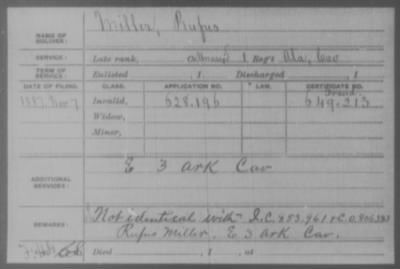 NAME OF SOLDIER: Miller, Rufus
SERVICE: Late rank, 1 Reg't Ala, Cav
TERM OF SERVICE: Enlisted , 1 Discharged , 1
DATE OF FILING. CLASS. APPLICATION NO. LAW. CERTIFICATE NO.
1887, Nov 7 Invalid, 628.196 649.213
Widow,
Minor,
ADDITIONAL SERVICES: E 3 Ark Cav
REMARKS: "Not identical with I.C. 883.961 & C.O.
Rufus Miller. E 3 Ark Cav.
Died , 1 , at